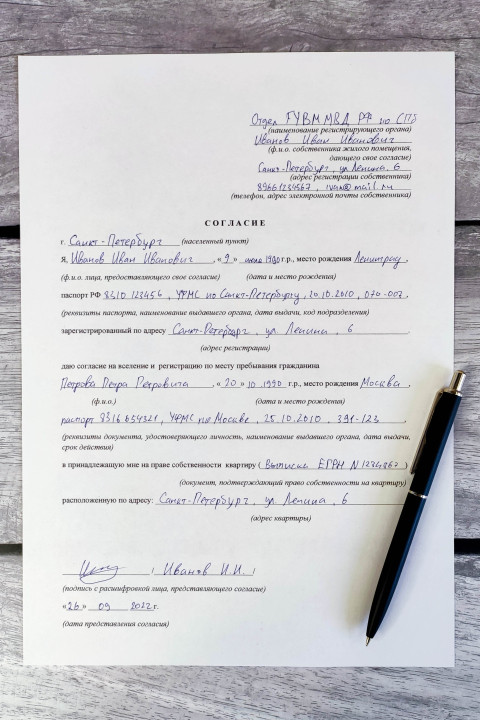 Отдел ГУВМ МВД РФ по СПб
(наименование регистрирующего органа)
Иванов Иван Иванович
(ф.и.о. собственника жилого помещения,
дающего свое согласие)
Санкт-Петербург, ул. Ленина, 6
(адрес регистрации собственника)
89661234567, ivan@mail.ru
(телефон, адрес электронной почты собственника)
СОГЛАСИЕ
г. Санкт-Петербург (населенный пункт)
Я, Иванов Иван Иванович, «9» июля 1980 г.р., место рождения Ленинград,
(ф.и.о. лица, предоставляющего свое согласие) (дата и место рождения)
паспорт РФ 8310 123456, УФМС по Санкт-Петербургу, 20.10.2010, 070-007,
(реквизиты паспорта, наименование выдавшего органа, дата выдачи, код подразделения)
зарегистрированный по адресу Санкт-Петербург, ул. Ленина, 6
(адрес регистрации)
даю согласие на вселение и регистрацию по месту пребывания гражданина
Петрова Петра Петровича, «20» 10 1990 г.р., место рождения Москва,
(ф.и.о.) (дата и место рождения)
паспорт 8316 654321, УФМС по Москве, 25.10.2010, 391-123
(реквизиты документа, удостоверяющего личность, наименование выдавшего органа, дата выдачи,
срок действия)
в принадлежащую мне на праве собственности квартиру (Выписка ЕГРН N1234867)
(документ, подтверждающий право собственности на квартиру)
расположенную по адресу: Санкт-Петербург, ул. Ленина, 6
(адрес квартиры)
/ Иванов И.И. /
(подпись с расшифровкой лица, представляющего согласие)
«26» 09 2022 г.
(дата представления согласия)